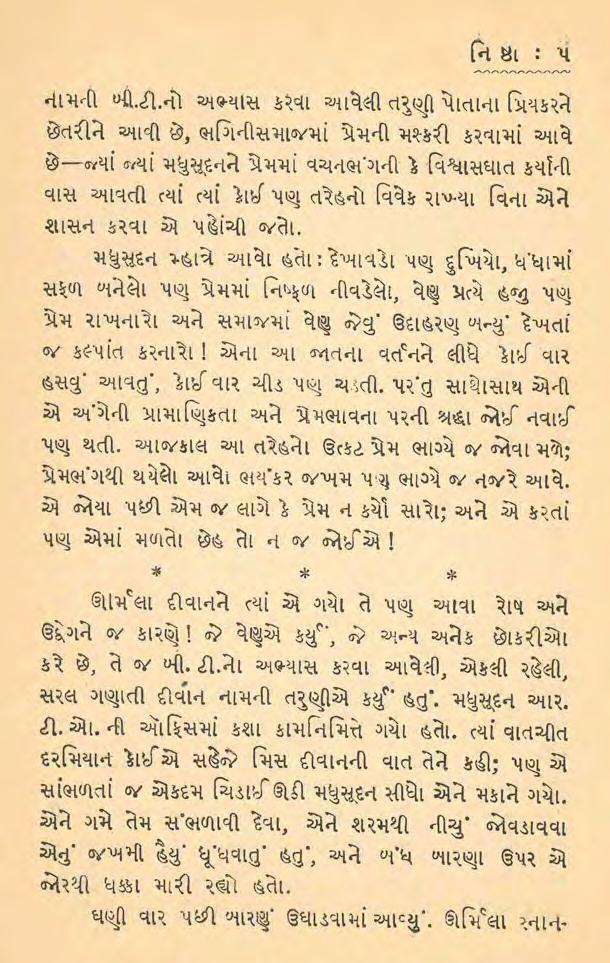 નિષ્ઠા : ૫
નામની બી.ટી.નો અભ્યાસ કરવા આવેલી તરુણી પોતાના પ્રિયકરને
છેતરીને આવી છે, ભગિનીસમાજમાં પ્રેમની મશ્કરી કરવામાં આવે
છે—જ્યાં જ્યાં મધુસૂદનને પ્રેમમાં વચનભંગની કે વિશ્વાસઘાત કર્યાની
વાસ આવતી ત્યાં ત્યાં કોઈ પણ તરેહનો વિવેક રાખ્યા વિના એને
શાસન કરવા એ પહોંચી જતો.
મધુસૂદન મ્હાત્રે આવો હતો : દેખાવડો પણ દુખિયો, ધંધામાં
સફળ બનેલો પણ પ્રેમમાં નિષ્ફળ નીવડેલો, વેણુ પ્રત્યે હજુ પણ
પ્રેમ રાખનારો અને સમાજમાં વેણુ જેવું ઉદાહરણ બન્યું દેખતાં
જ કલ્પાંત કરનારો ! એના આ જાતના વર્તનને લીધે કોઈ વાર
હસવું આવતું, કોઈ વાર ચીડ પણ ચડતી. પરંતુ સાથોસાથ એની
એ અંગેની પ્રામાણિકતા અને પ્રેમભાવના પરની શ્રદ્ધા જોઈ નવાઈ
પણ થતી. આજકાલ આ તરેહનો ઉત્કટ પ્રેમ ભાગ્યે જ જોવા મળે;
પ્રેમભંગથી થયેલો આવો ભયંકર જખમ પણ ભાગ્યે જ નજરે આવે.
એ જોયા પછી એમ જ લાગે કે પ્રેમ ન કર્યો સારો; અને એ કરતાં
પણ એમાં મળતો છેહ તો ન જ જોઈએ !
* * *
ઊર્મિલા દીવાનને ત્યાં એ ગયો તે પણ આવા રોષ અને
ઉદ્વેગને જ કારણે ! જે વેણુએ કર્યું, જે અન્ય અનેક છોકરીઓ
કરે છે, તે જ બી. ટી.નો અભ્યાસ કરવા આવેલી, એકલી રહેલી,
સરલ ગણાતી દીવાન નામની તરુણીએ કર્યું હતું. મધુસૂદન આર.
ટી. ઓ. ની ઑફિસમાં કશા કામનિમિત્તે ગયો હતો. ત્યાં વાતચીત
દરમિયાન કોઈએ સહેજે મિસ દીવાનની વાત તેને કહી; પણ એ
સાંભળતાં જ એકદમ ચિડાઈ ઊઠી મધુસૂદન સીધો એને મકાને ગયો.
એને ગમે તેમ સંભળાવી દેવા, એને શરમથી નીચું જોવડાવવા
એનું જખમી હૈયું ધૂંધવાતું હતું, અને બંધ બારણા ઉપર એ
જોરથી ધક્કા મારી રહ્યો હતો.
ઘણી વાર પછી બારણું ઉઘાડવામાં આવ્યું. ઊર્મિલા સ્નાન-